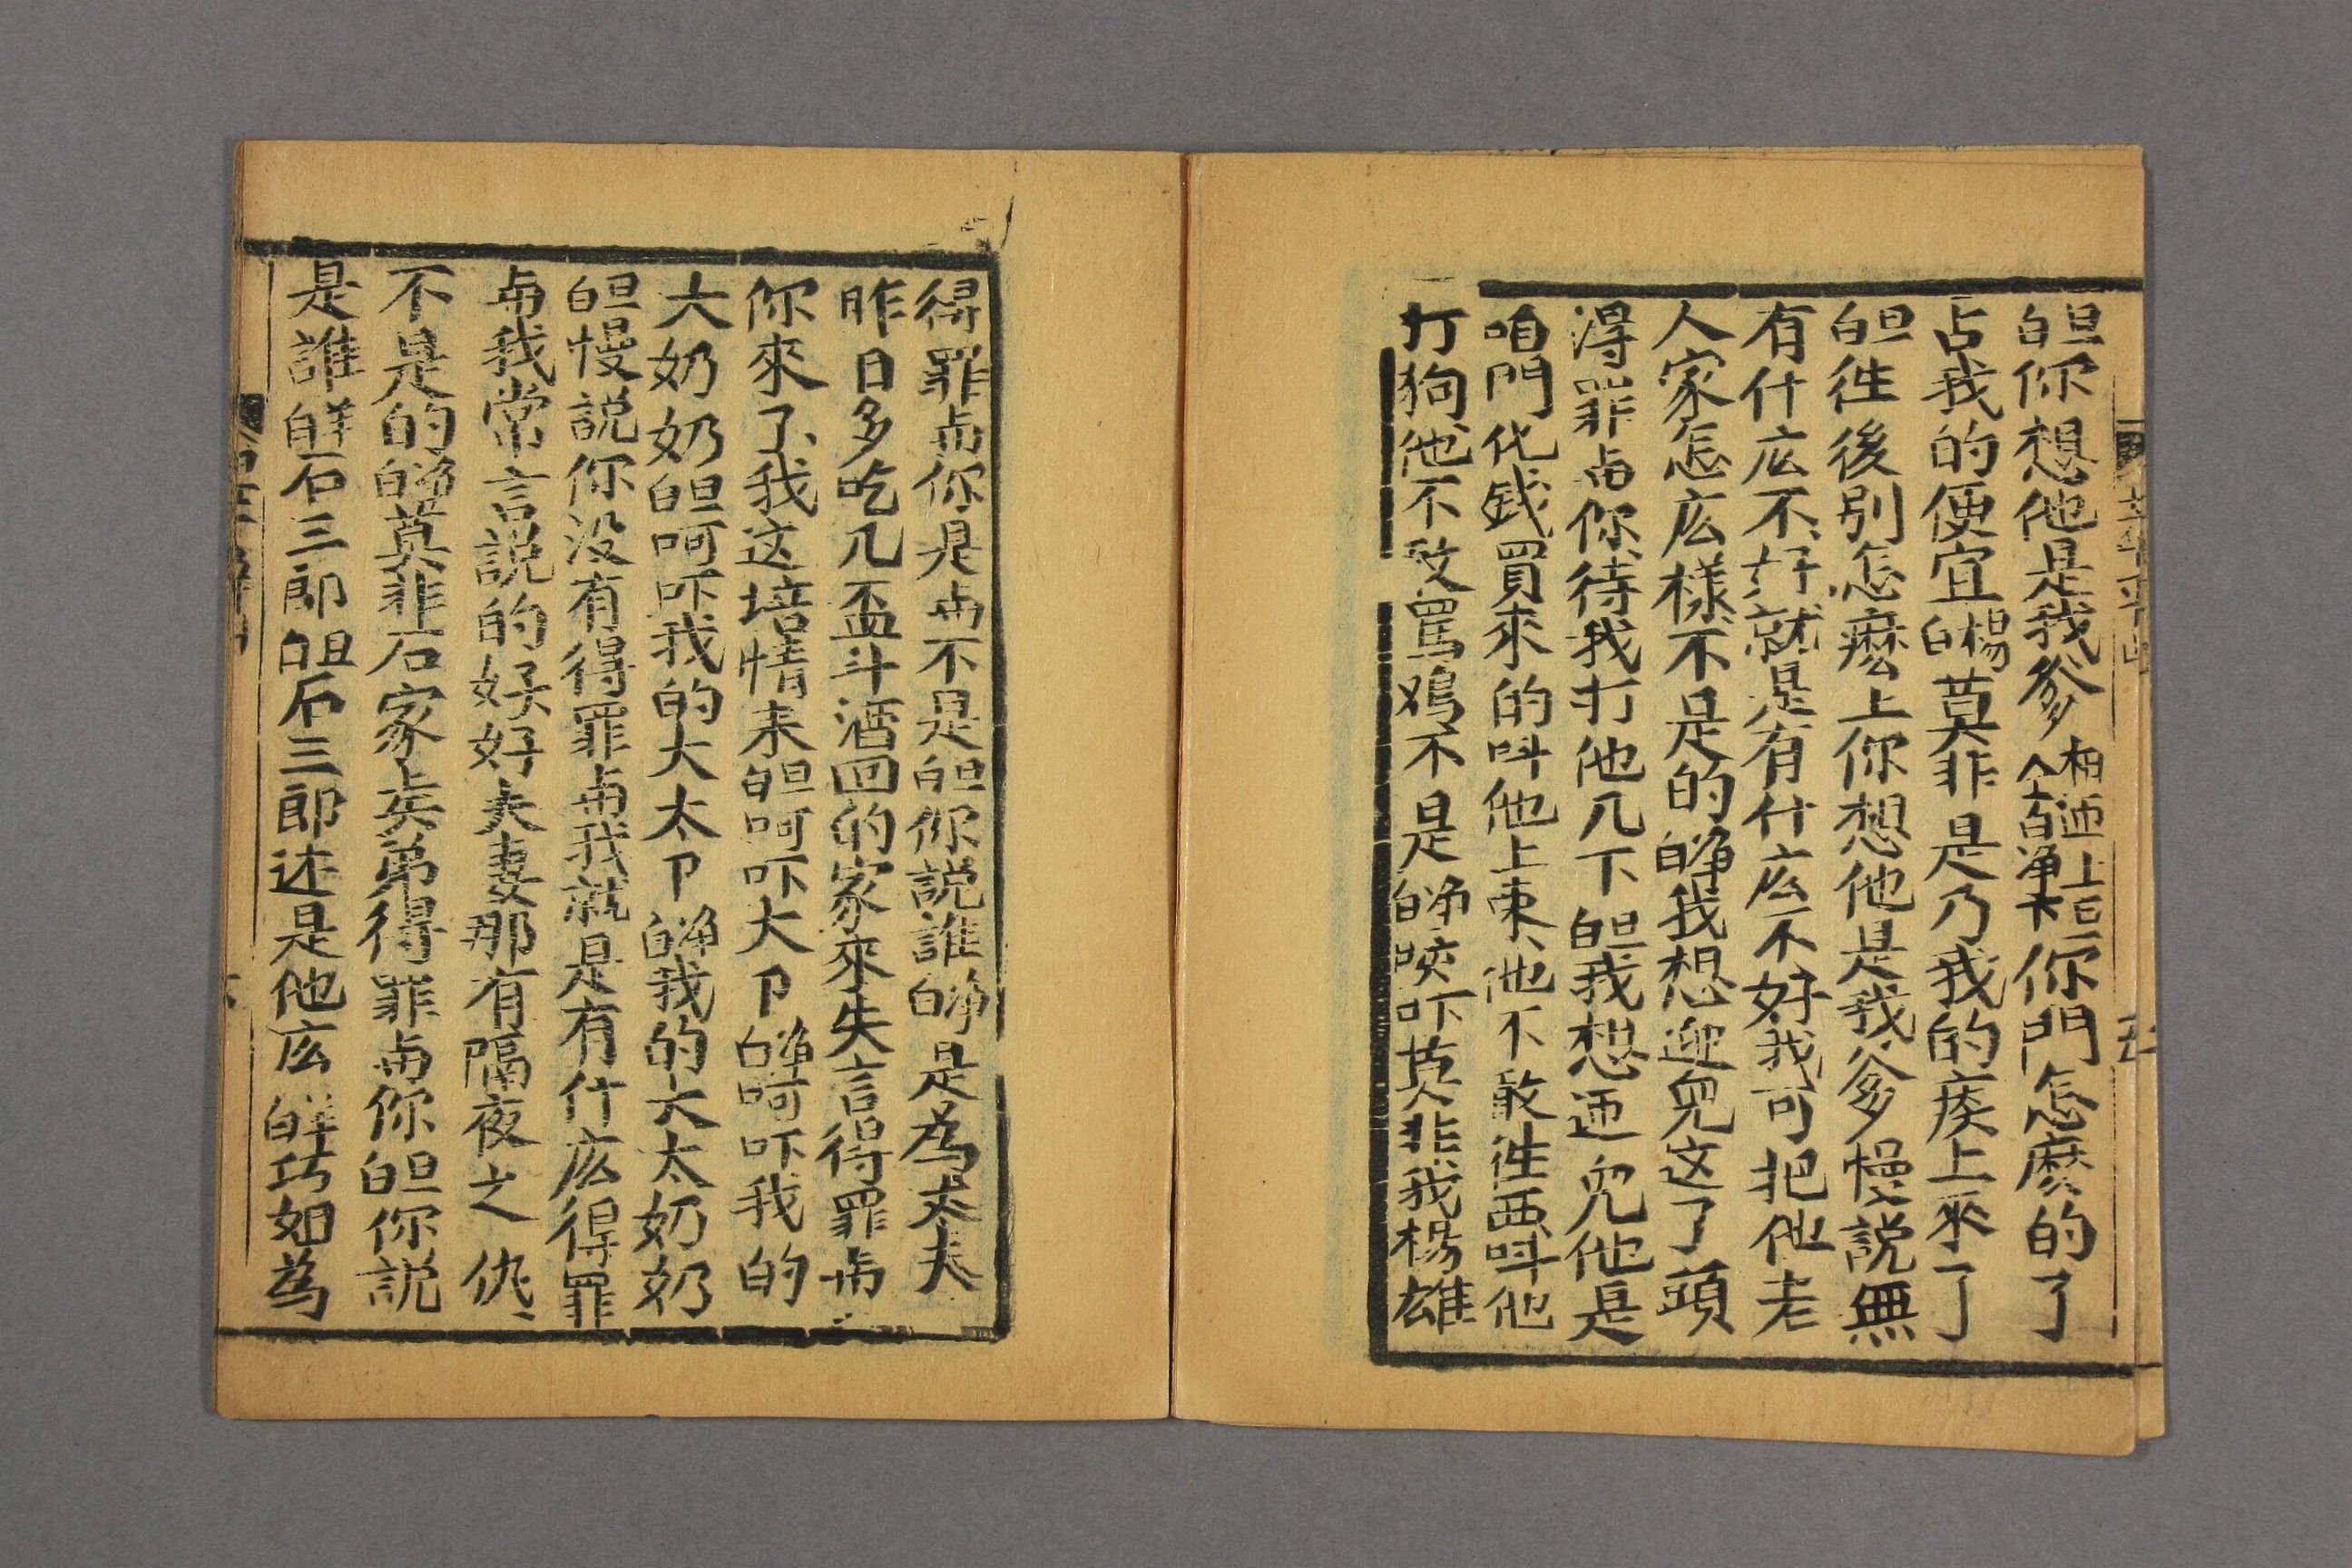 旦白你想他是我爹 相迊上旨 仝白凈卡 你門怎麽的了
占我的便宜楊白莫非是乃我的疾上來了
旦白徃後別怎麽上你想他是我爹慢説無
有什庅不好就是有什庅不好我可把他老
人家怎庅樣不是的凈白我想迊兒这了頭
淂罪与你待我打他几下旦白我想迊兒他是
咱門化錢買來的呌他上東他不敢徃西呌他
打狗他不敢罵鸡不是凈白咳吓莫非我楊雄
得罪与你是与不是旦白你説誰凈白是爲丈夫
昨日多吃几盃斗酒回的家來失言得罪与
你來了我这培情來旦白呵吓大卩凈白呵吓我的
大奶奶旦白呵吓我的大太卩凈白我的大太奶奶
旦白慢説你没有得罪与我就是有什庅得罪
与我常言説的好好夫妻那有隔夜之仇
不是的凈白莫非石家矣弟得罪与你旦白你説
是誰生白石三郎旦白石三郎还是他庅生白巧如爲